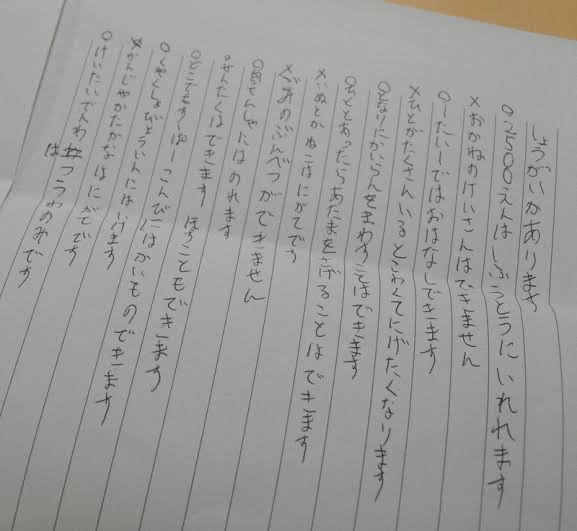 しょうがいがあります
○2500えんは ふうとうに いれれます
×おかねのけいさんはできません
○一たい一ではおはなしできます
×ひとがたくさんいるとこわくてにげたくなります
○となりにかいらんをまわすことはできます
○ひととあったらあたまをさげることはできます
×いぬとか ねこはにがてです
×ごみのぶんべつができません
○自てんしゃにはのれます
○せんたくはできます ほすこともできます
○どこでもすーぱー こんびにはかいものできます
○くやくしょびょういんにはいけます
×かんじやかたかなはにがてです
○けいたいでんわはつうわのみです